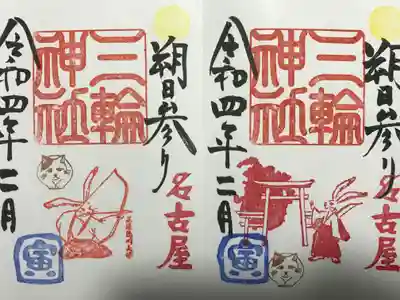 朔日参り
名古屋
三輪
神社
令和四年二月
寅
朔日参り
名古屋
三輪
神社
令和四年二月
寅